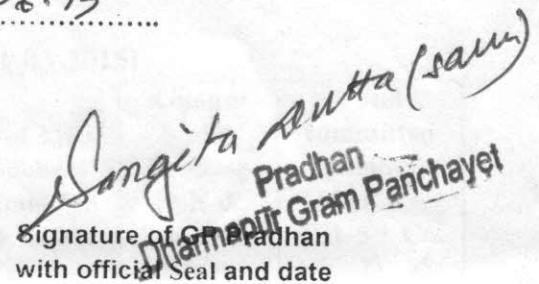 Sangita Dutta (Saui)
Pradhan
Dharmapur Gram Panchayet
Signature of GP Pradhan
with official Seal and date